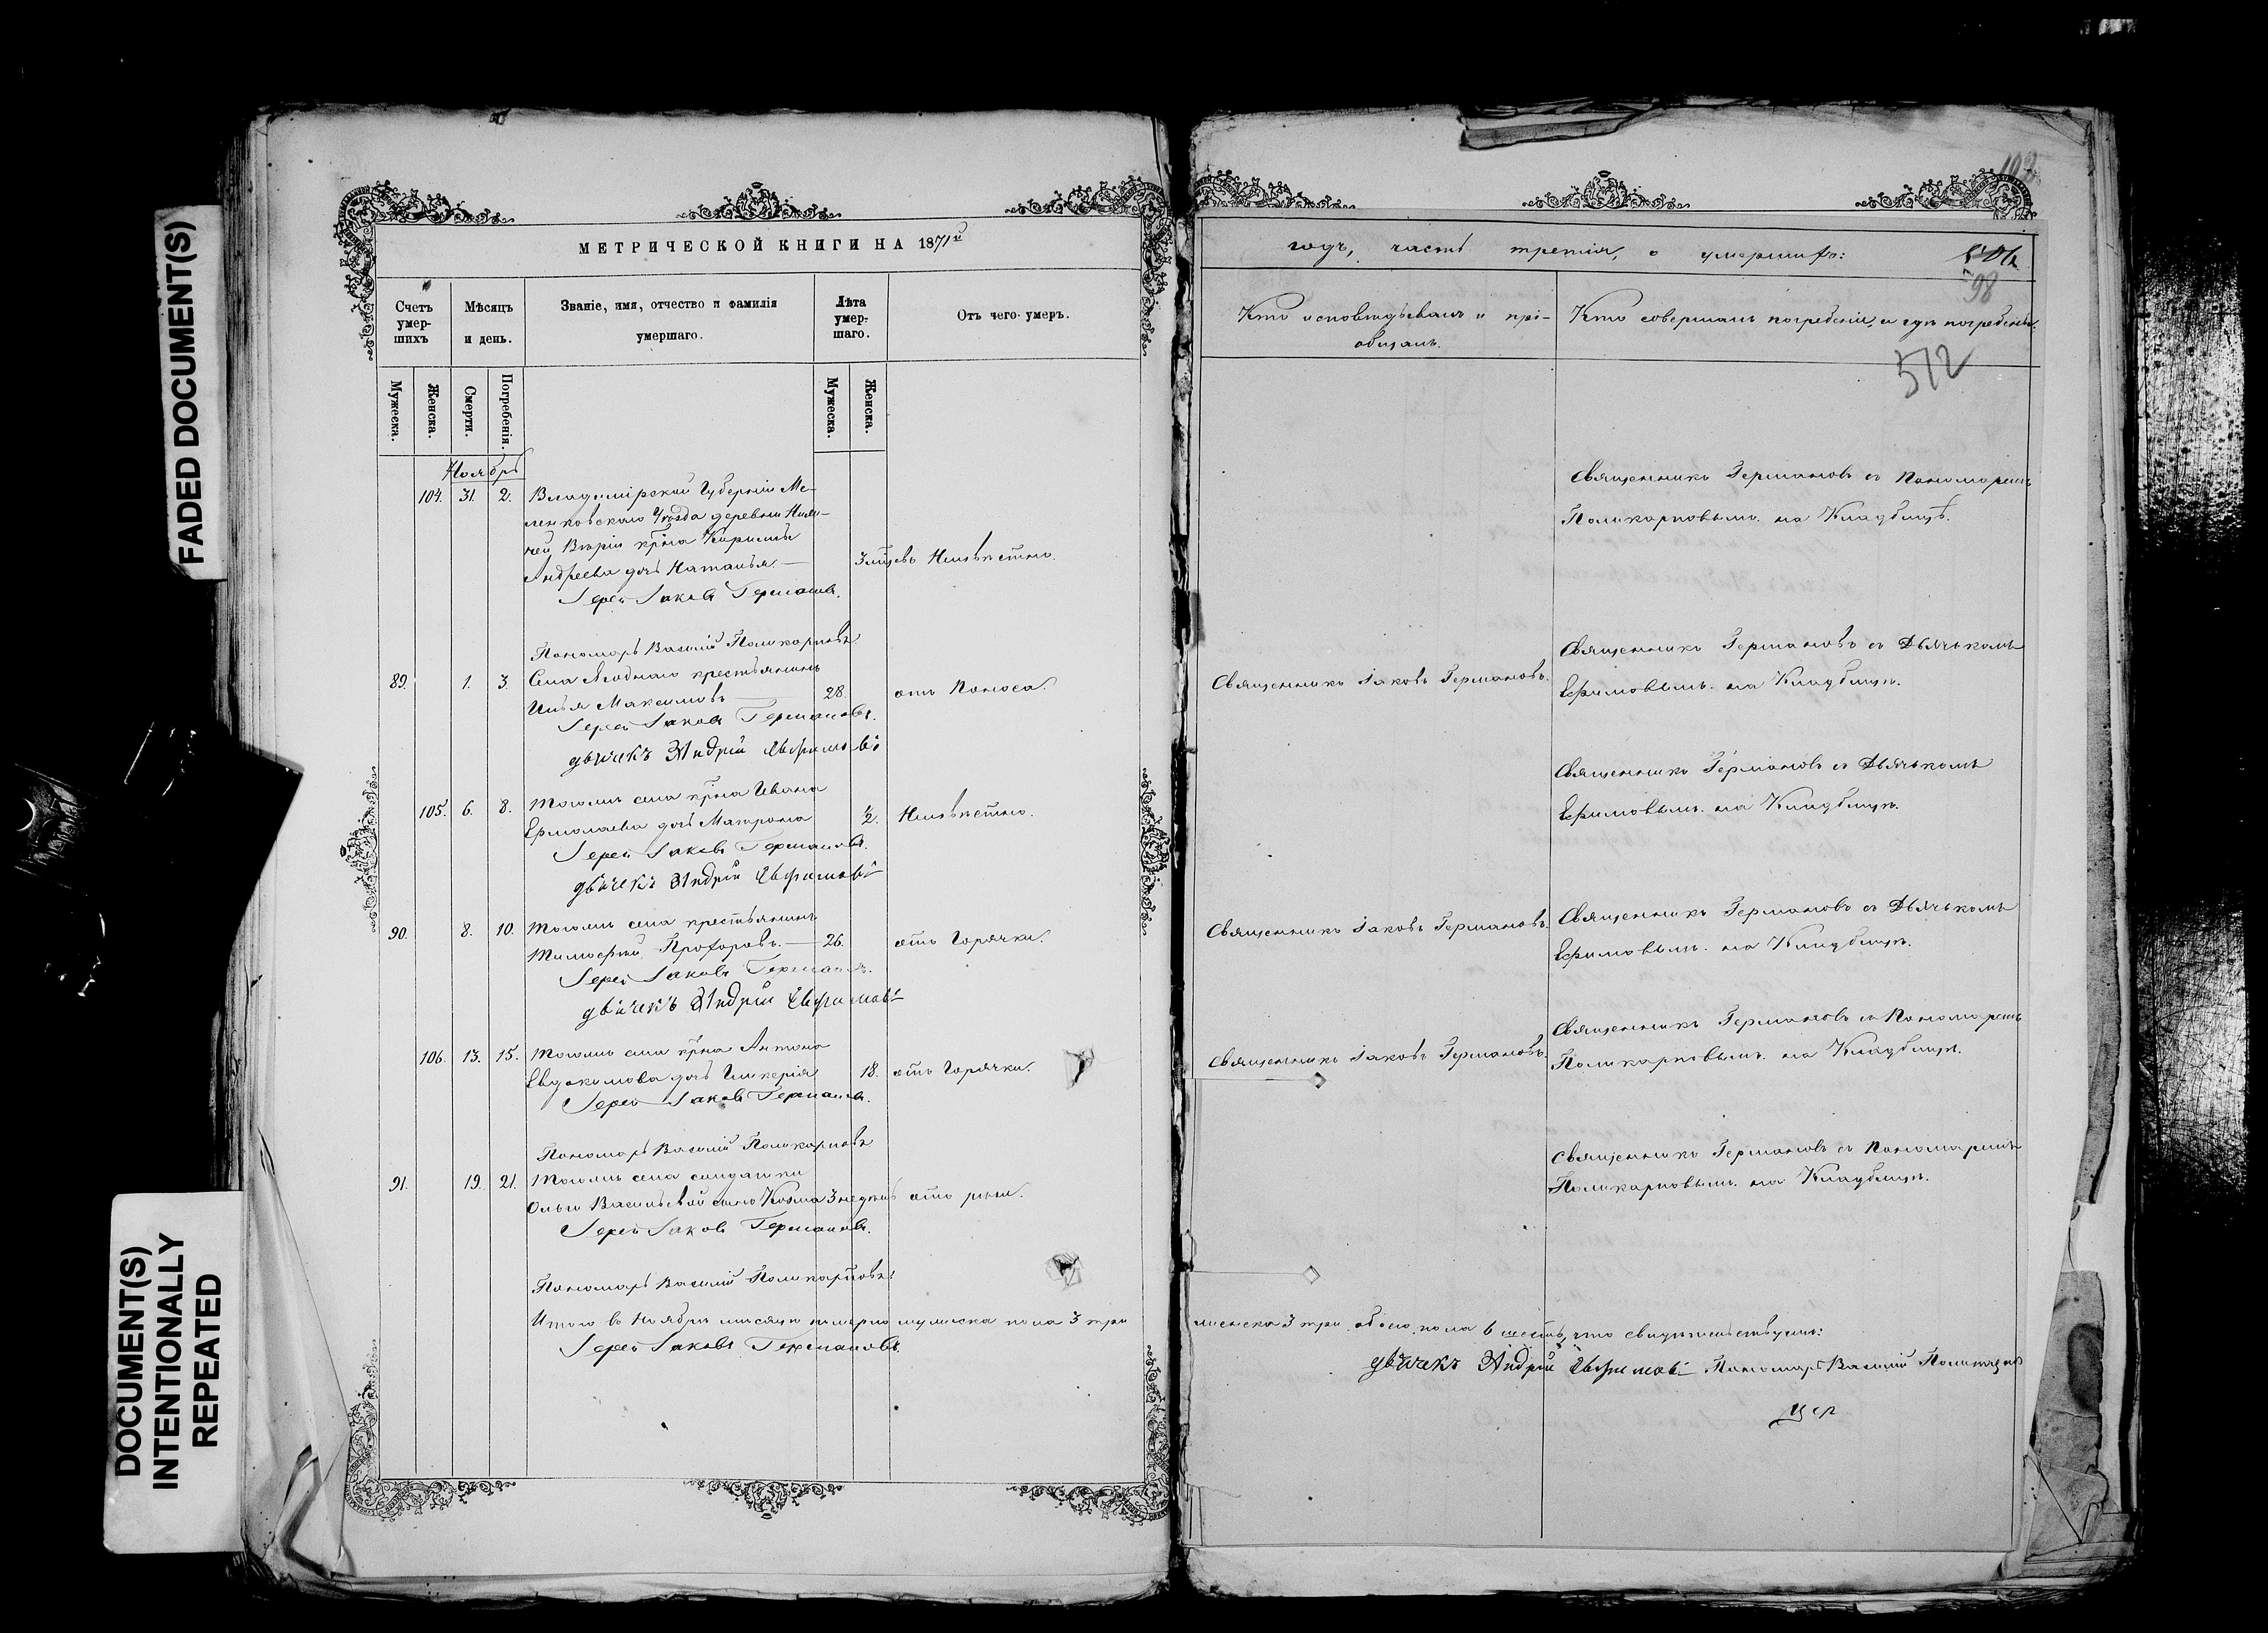 FADED DOCUMENT(S)
DOCUMENT(S)
INTENTIONALLY
REPEATED
МЕТРИЧЕСКОЙ КНИГИ НА 1871й
Счетъ
умер-
шихъ
Мѣсяцъ
и день.
Званіе, имя, отчество и фамилія
умершаго.
Лѣта
умер-
шаго.
Отъ чего умеръ.
Мужеска.
Женска.
Смерти.
Погребенія.
Мужеска.
Женска.
Ноябрь
104. 31. 2. Владимірской Губерніи Ме-
ленковскаго Уѣзда деревни
крна Кирилы
Андреева дочь Наталья.
Неизвѣстно.
Іерей Іаковъ Германовъ.
Пономарь Василій Поликарповъ.
89. 1. 3. Села Ягоднаго крестьянинъ
Илья Максимовъ 28. отъ Поноса.
Іерей Іаковъ Германовъ.
дьячекъ Андрей Ефимовъ
105. 6. 8. Тогожъ села крна Ивана
Ермолаева дочь Матрона ½. Неизвѣстно.
Іерей Іаковъ Германовъ.
дьячекъ Андрей Ефимовъ
90. 8. 10. Тогожъ села крестьянинъ
Тимофей Прохоровъ. 26. отъ Горячки.
Іерей Іаковъ Германовъ.
дьячекъ Андрей Ефимовъ
106. 13. 15. Тогожъ села крна Антона
Евдокимова дочь Гликерія 18. отъ Горячки.
Іерей Іаковъ Германовъ.
Пономарь Василій Поликарповъ
91. 19. 21. Тогожъ села солдатки
Ольги Васильевой сынъ Козма 3 недѣль отъ
Іерей Іаковъ Германовъ.
Пономарь Василій Поликарповъ.
Итого въ Ноябрѣ мѣсяцѣ померло мужеска пола 3 три
Іерей Іаковъ Германовъ.
годъ, часть третія, о умершихъ:
98
512
Кто исповѣдывалъ и прі-
общалъ.
Кто совершалъ погребеніе, и гдѣ погребены.
Священникъ Германовъ съ Пономаремъ
Поликарповымъ. на Кладбищѣ.
Священникъ Іаковъ Германовъ.
Священникъ Германовъ съ Дьячькомъ
Ефимовымъ. на Кладбищѣ.
Священникъ Германовъ съ Дьячькомъ
Ефимовымъ. на Кладбищѣ.
Священникъ Іаковъ Германовъ.
Священникъ Германовъ съ Дьячькомъ
Ефимовымъ. на Кладбищѣ.
Священникъ Іаковъ Германовъ.
Священникъ Германовъ съ Пономаремъ
Поликарповымъ. на Кладбищѣ.
Священникъ Германовъ съ Пономаремъ
Поликарповымъ. на Кладбищѣ.
женска 3 три обоего пола 6 шесть, что свидѣтельствуемъ:
дьячекъ Андрей Ефимовъ Пономарь Василій